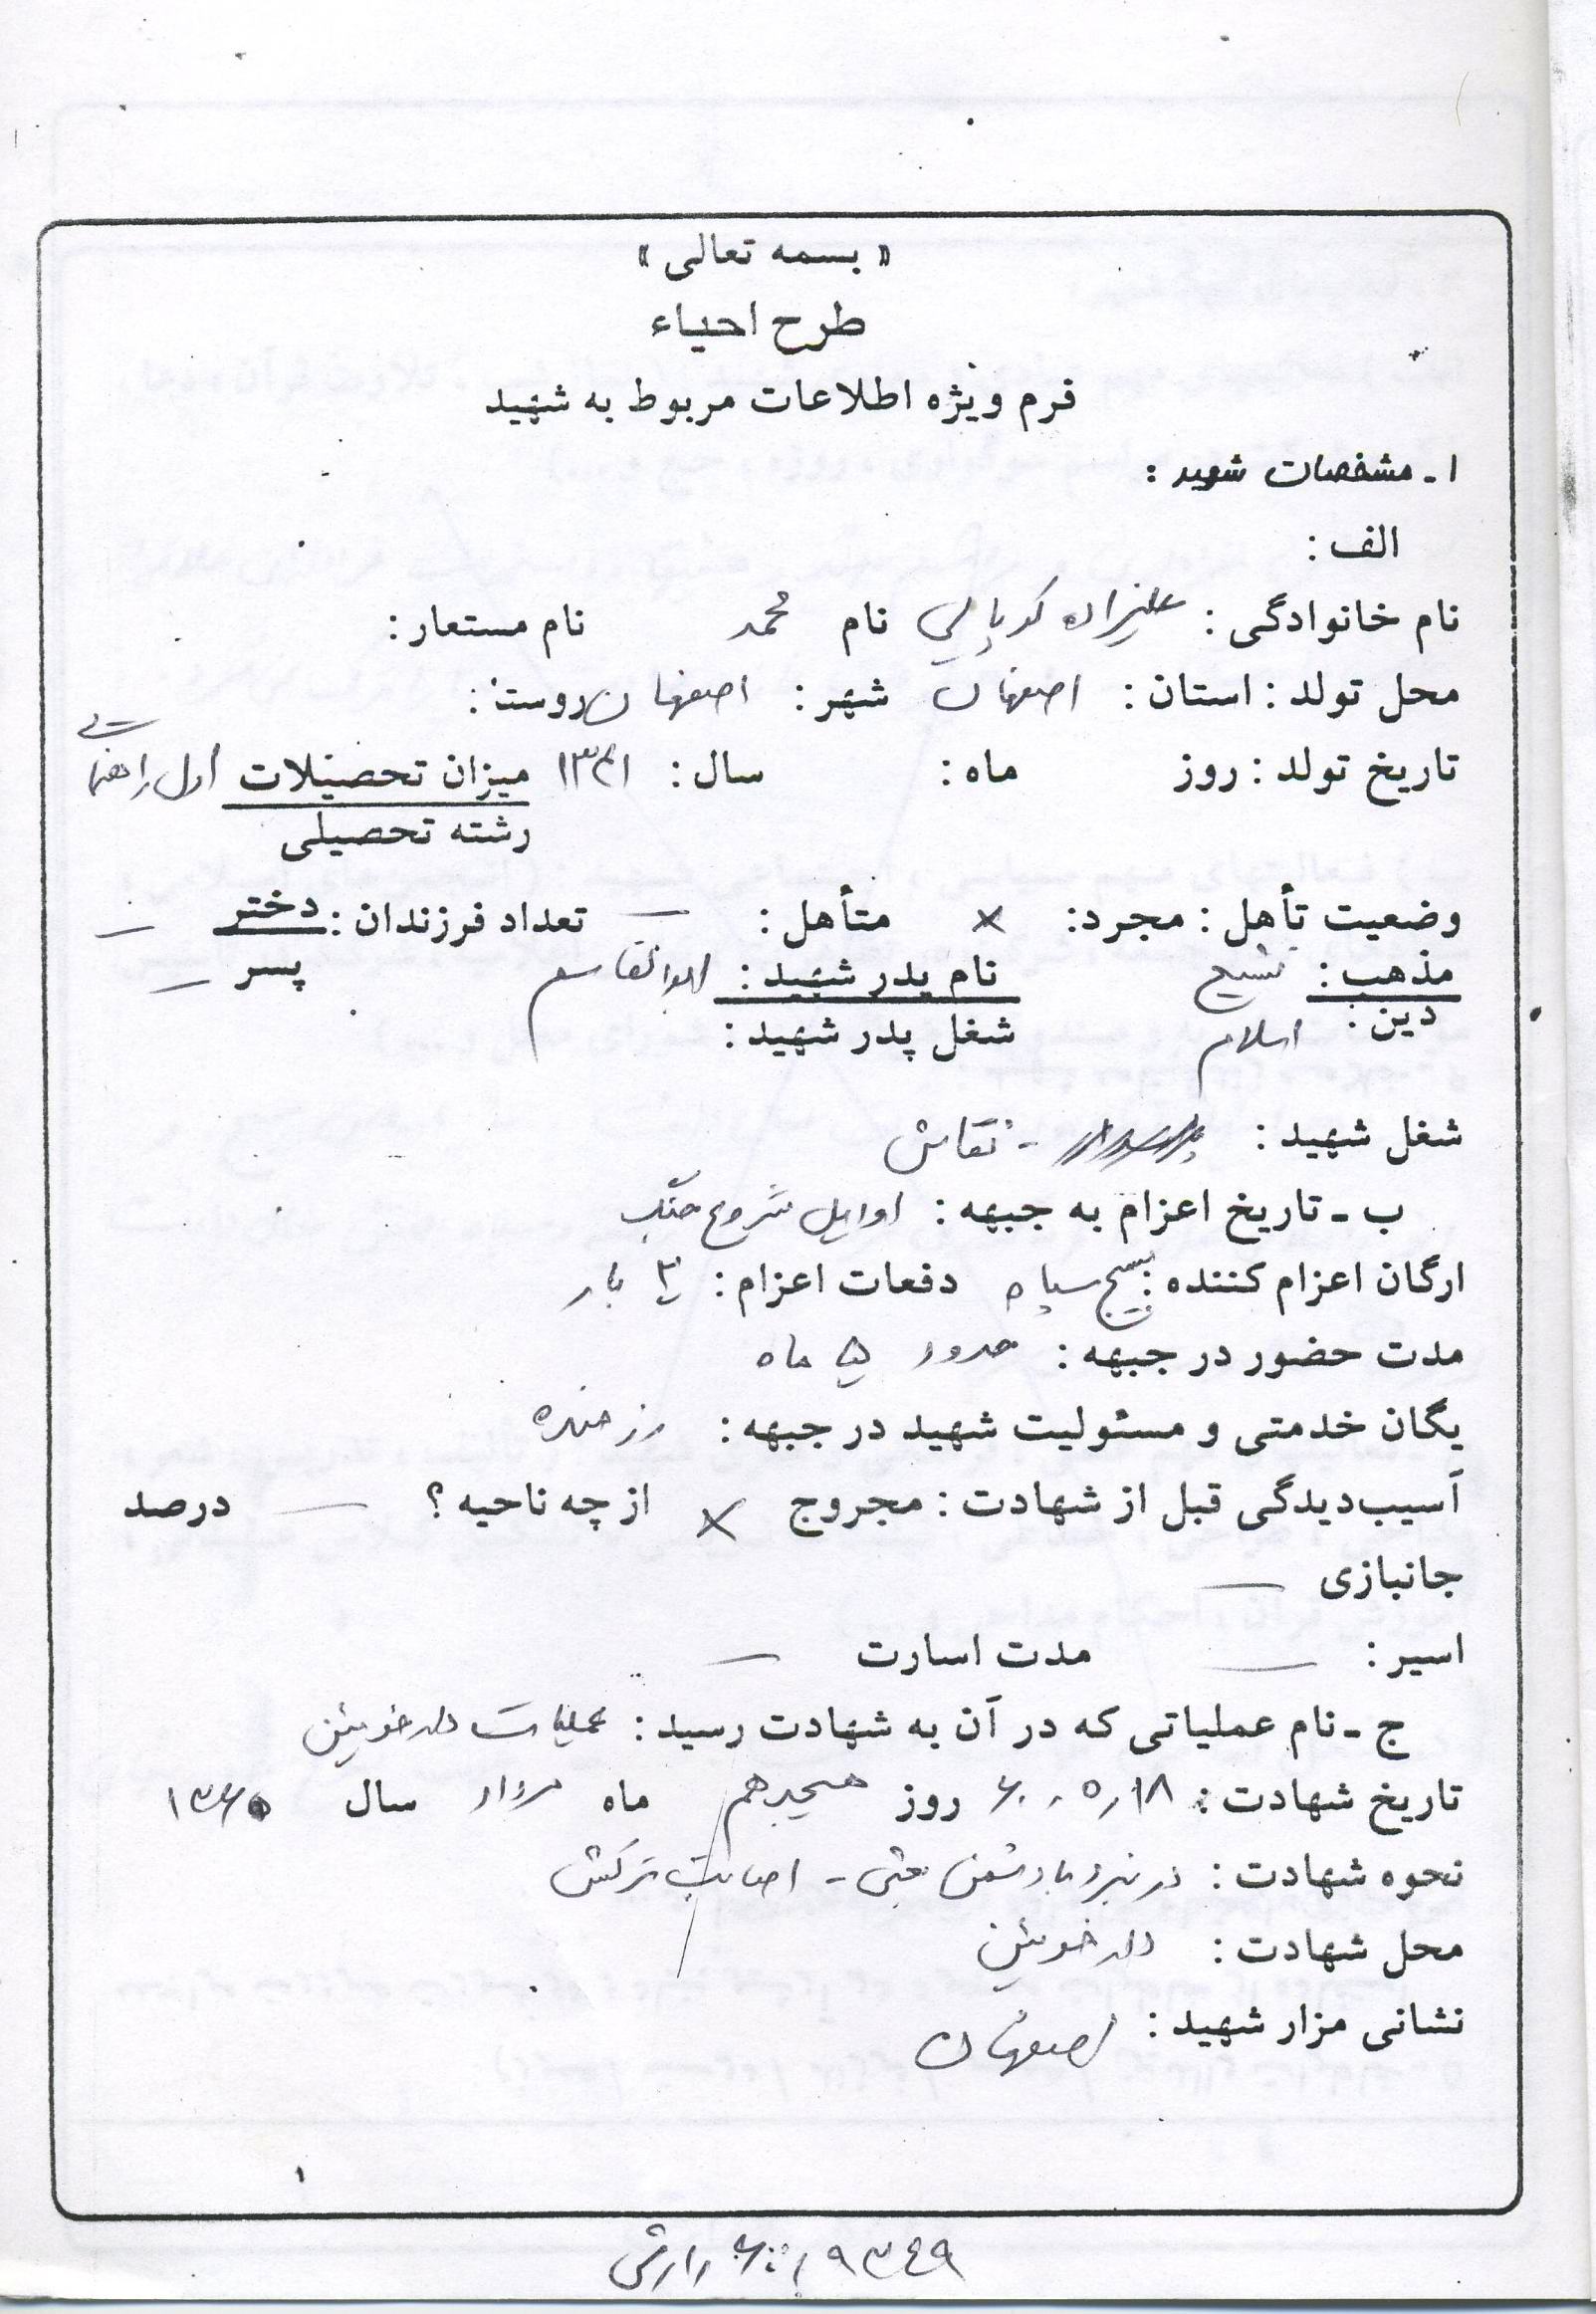 « بسمه تعالی »
طرح احیاء
فرم ویژه اطلاعات مربوط به شهید
۱ـ مشخصات شهید :
الف :
نام خانوادگی : علیزاده نام محمد نام مستعار :
محل تولد : استان : اصفهان شهر : اصفهان روستا :
تاریخ تولد : روز ماه : سال : ۱۳۴۱ میزان تحصیلات اول راهنمائی
رشته تحصیلی
وضعیت تأهل : مجرد : × متأهل : — تعداد فرزندان : دختر —
مذهب : تشیع نام پدر شهید : ابوالقاسم پسر —
دین : اسلام شغل پدر شهید :
شغل شهید : - نقاش
ب ـ تاریخ اعزام به جبهه : اوایل شروع جنگ
ارگان اعزام کننده : بسیج سپاه دفعات اعزام : ۳ بار
مدت حضور در جبهه : حدود ۵ ماه
یگان خدمتی و مسئولیت شهید در جبهه : رزمنده
آسیب‌دیدگی قبل از شهادت : مجروح × از چه ناحیه ؟ — درصد
جانبازی —
اسیر : — مدت اسارت —
ج ـ نام عملیاتی که در آن به شهادت رسید : عملیات دارخوئین
تاریخ شهادت : ۶۰،۵،۱۸ روز هیجدهم ماه مرداد سال ۱۳۶۰
نحوه شهادت : در نبرد با دشمن بعثی - اصابت ترکش
محل شهادت : دارخوئین
نشانی مزار شهید : اصفهان
۱